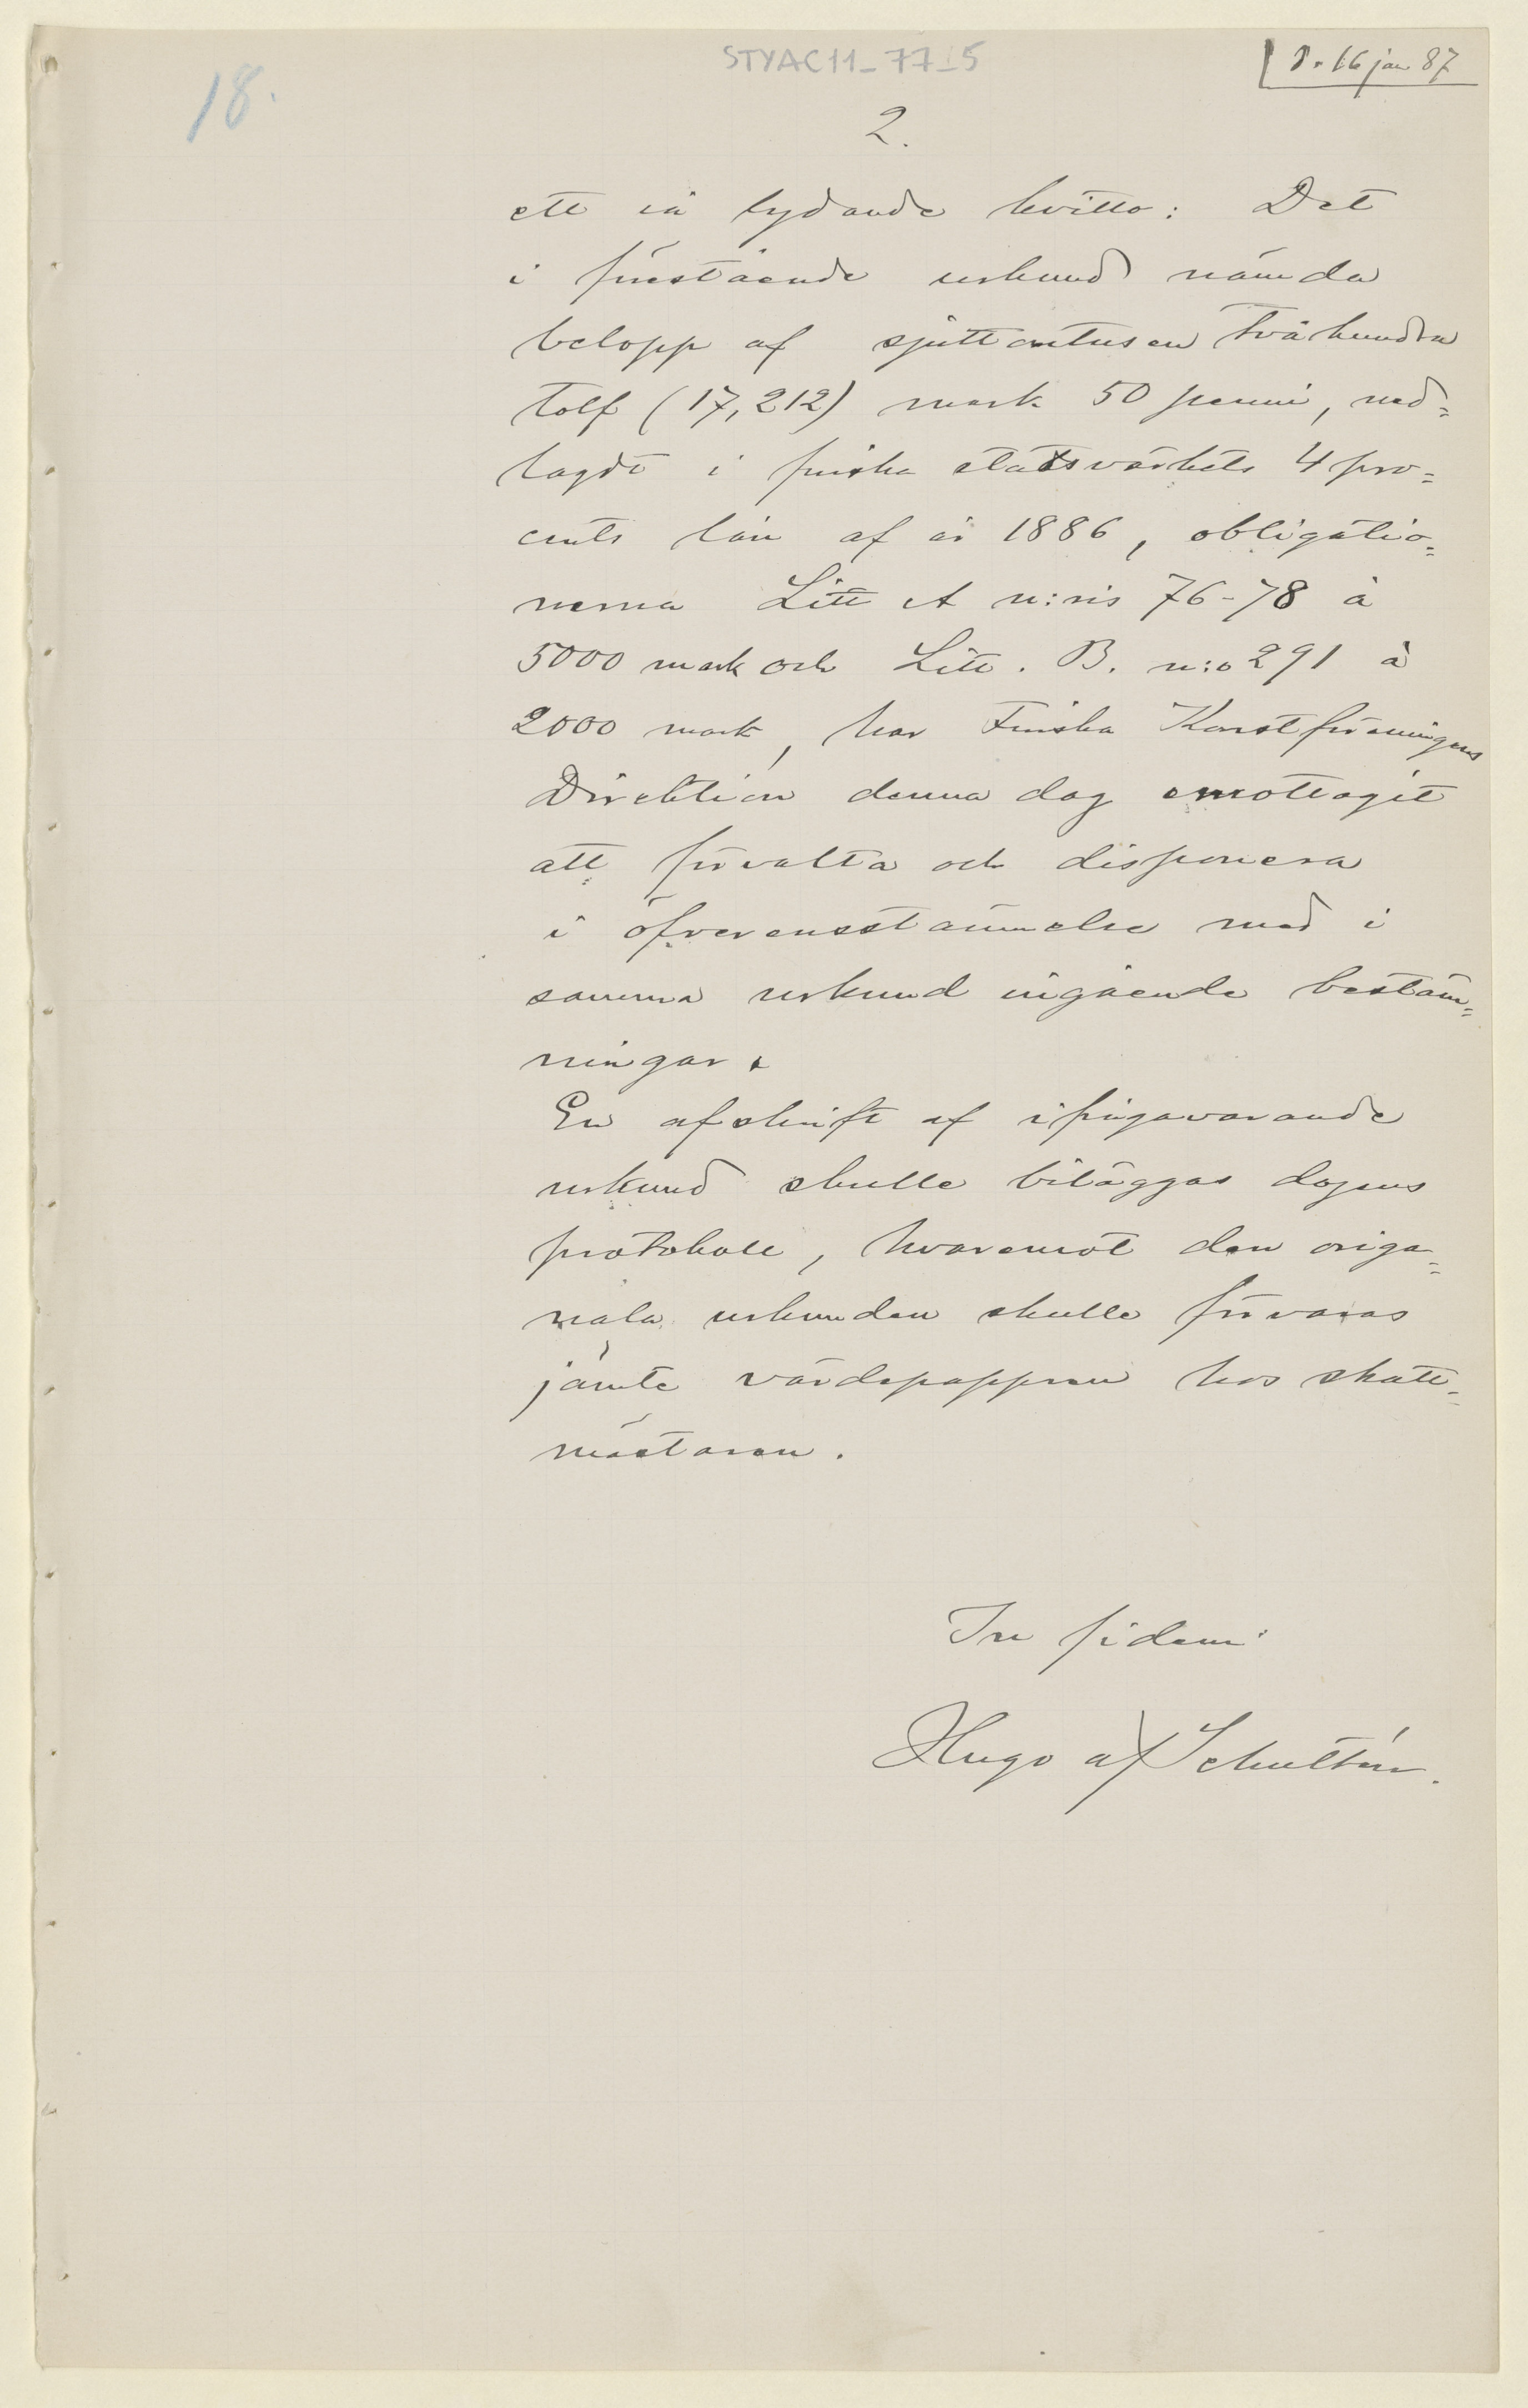 18.
STYAC11_77_5
D. 16 jan 87
2.
ett så lydande kvitto: Det
i förestående urkund nämda
belopp af sjuttontusen tvåhundra
tolf (17,212) mark 50 penni, ned=
lagdt i finska statsvärkets 4 pro=
cents lån af år 1886, obligatio=
nerna Litt A n:ris 76-78 à
5000 mark och Litt. B. n:o 291 à
2000 mark, har Finska Konstföreningens
Direktion denna dag emottagit
att förvalta och disponera
i öfverensstämmelse med i
samma urkund ingående bestäm=
ningar.
En afskrift af ifrågavarande
urkund skulle biläggas dagens
protokoll, hvaremot den origi=
nala urkunden skulle förvaras
jämte värdepappren hos skatt=
mästaren.
In fidem:
Hugo af Schultén.